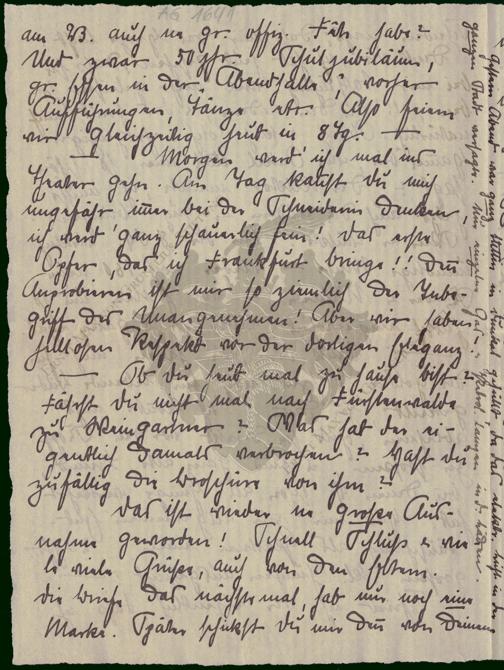 am 23. auch ne gr. offiz. Fête habe?
Und zwar 50jhr. Schuljubiläum,
gr. Essen in der "Abendhalle" vorher
Aufführungen, Tänze etc. Also feiern
wir gleichzeitig heut in 8 Tg. —
— Morgen werd' ich mal ins
Theater gehn. Am Tag kannst Du mich
ungefähr immer bei der Schneiderin denken,
ich werd' ganz schauerlich fein! Das erste
Opfer, das ich Frankfurt bringe!! Denn
Anprobieren ist mir so ziemlich der Inbe-
griff des Unangenehmen! Aber wir haben
heillosen Respekt vor der dortigen Eleganz
— Ob Du heut mal zu Hause bist?
Fährst Du nicht mal nach Fürstenwalde
zu Weingartner? Was hat der ei-
gentlich damals verbrochen? Hast Du
zufällig die Broschüre von ihm?
Das ist wieder ne große Aus-
nahme geworden! Schnell Schluß & vie-
le viele Grüße, auch von den Eltern.
die Briefe das nächste mal, hab nur noch eine
Marke. Später schickst Du mir denn von Deinen
Gestern Abend war ganz Stettin in Dunkel gehüllt, da das Elektr. Licht in der
ganzen Stadt versagte. Nur